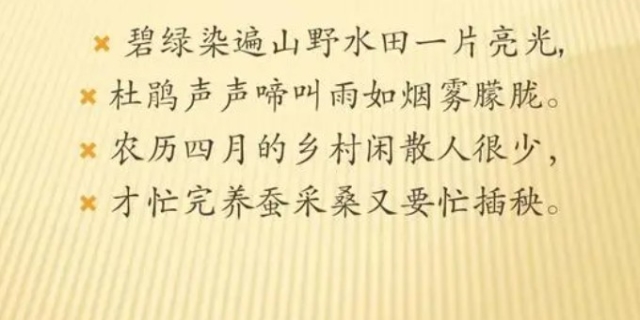 碧绿染遍山野水田一片亮光,
杜鹃声声啼叫雨如烟雾朦胧。
农历四月的乡村闲散人很少,
才忙完养蚕采桑又要忙插秧。